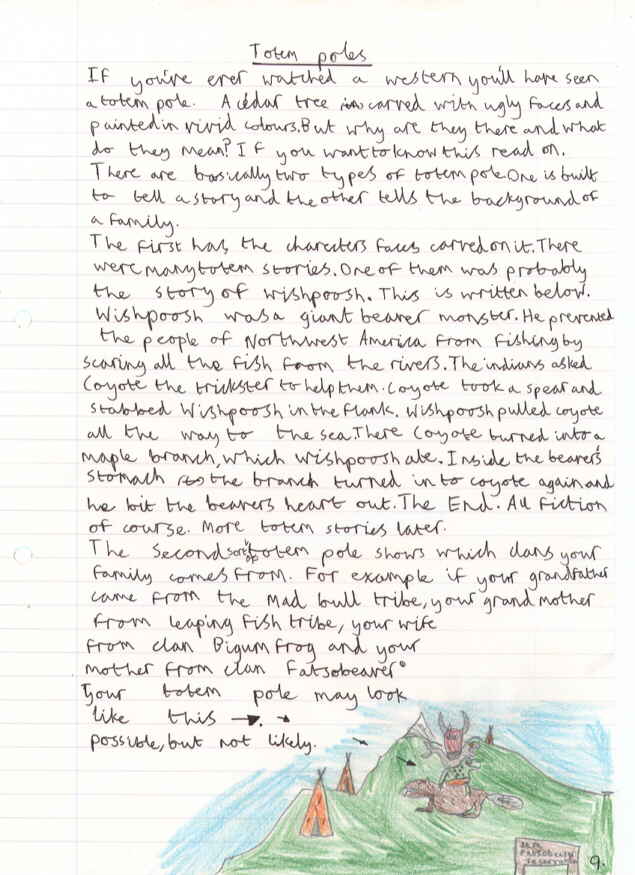 Totem poles
If you've ever watched a western you'll have seen
a totem pole. A cedar tree carved with ugly faces and
painted in vivid colours. But why are they there and what
do they mean? If you want to know this read on.
There are basically two types of totem pole. One is built
to tell a story and the other tells the background of
a family.
The first has the characters faces carved on it. There
were many totem stories. One of them was probably
the story of wishpoosh. This is written below.
Wishpoosh was a giant beaver monster. He prevented
the people of Northwest America from fishing by
scaring all the fish from the rivers. The indians asked
Coyote the trickster to help them. Coyote took a spear and
stabbed Wishpoosh in the flank. Wishpoosh pulled coyote
all the way to the sea. There Coyote turned into a
maple branch, which wishpoosh ate. Inside the beaver's
stomach the branch turned in to coyote again and
he bit the beavers heart out. The End. All fiction
of course. More totem stories later.
The second sort of totem pole shows which clans your
family comes from. For example if your grandfather
came from the mad bull tribe, your grand mother
from leaping fish tribe, your wife
from clan Bigum frog and your
mother from clan Fatsobeaver.
Your totem pole may look
like this →.
possible, but not likely.
9.